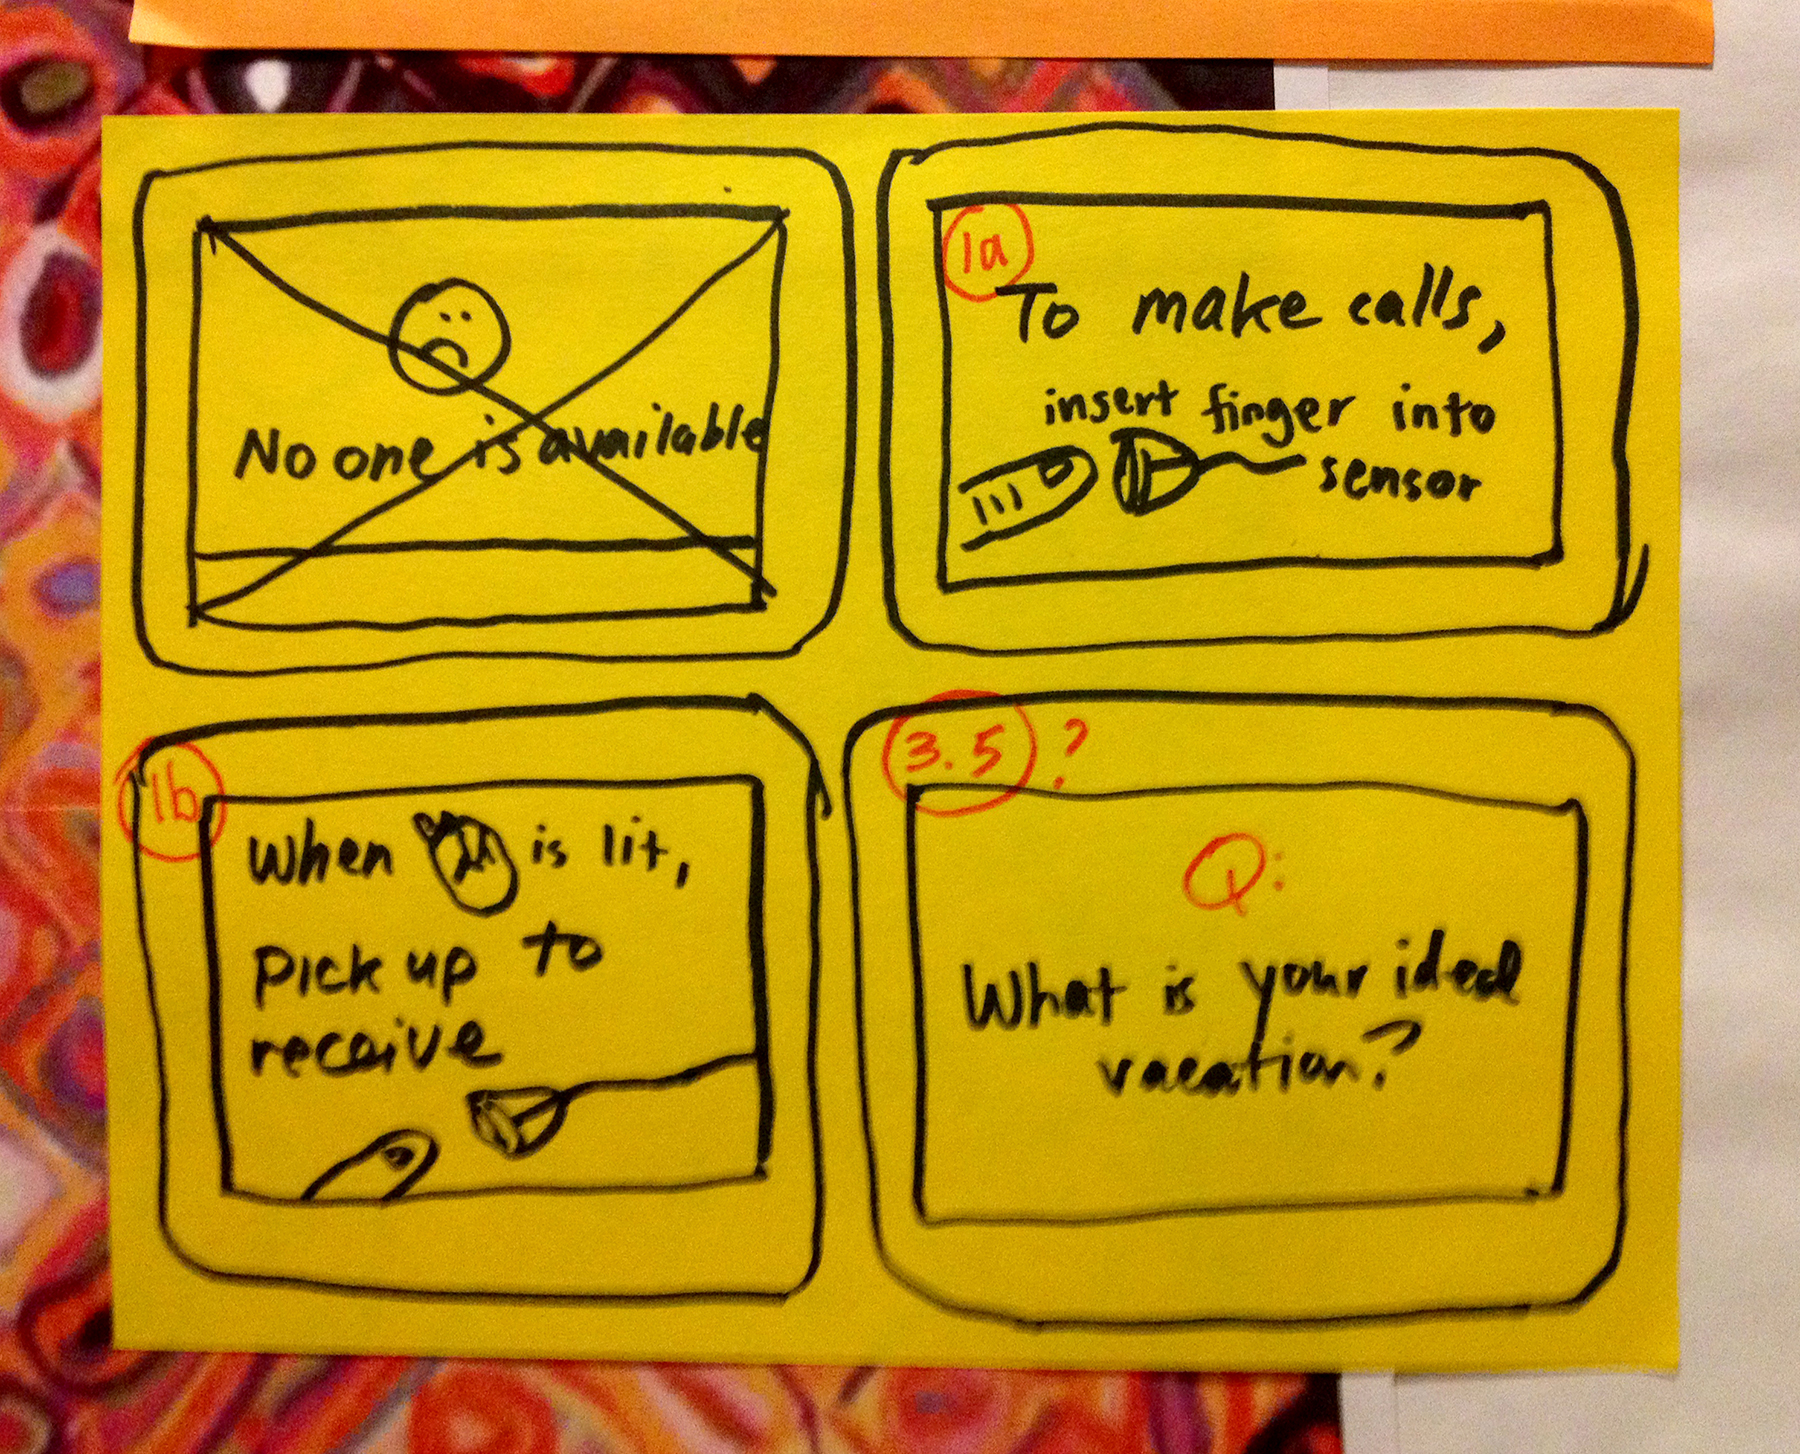 No one is available
1a
To make calls,
insert finger into
sensor
1b
When is lit,
Pick up to
receive
3.5 ?
Q:
What is your ideal
vacation?